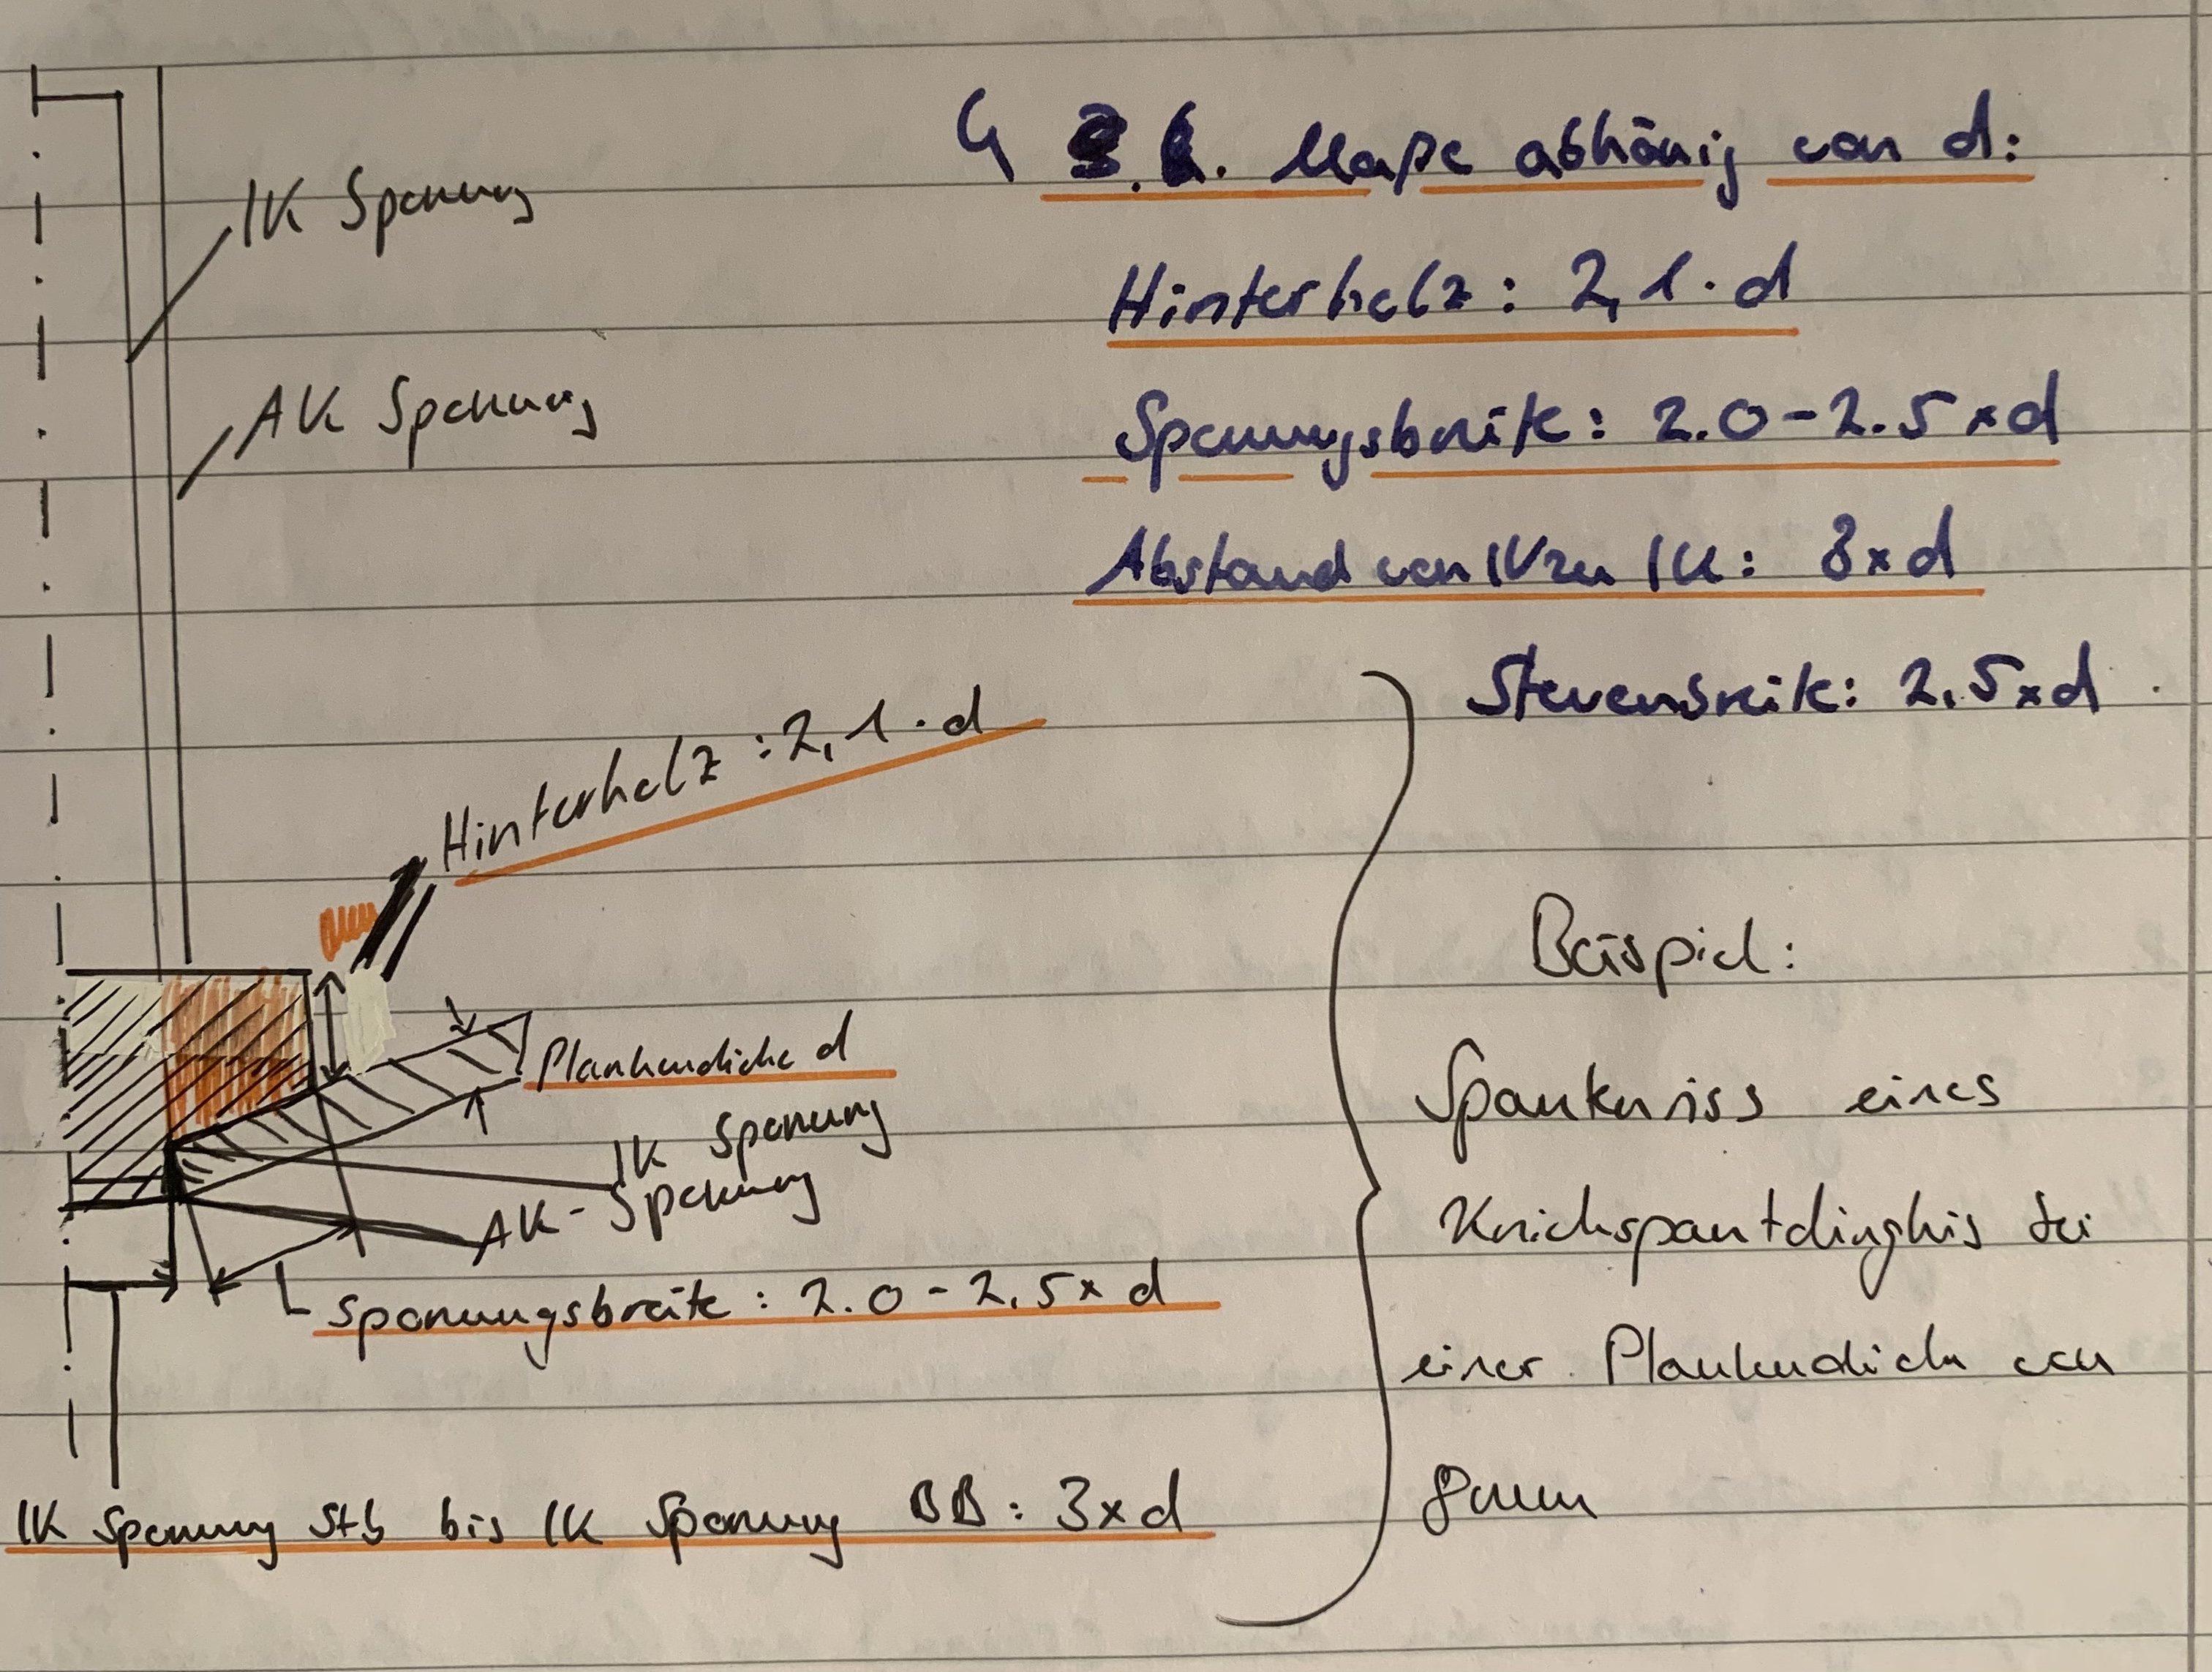 IK Sponung
AK Sponung
Hinterholz : 2,1 · d
Plankendicke d
IK Sponung
AK-Sponung
Sponungsbreite : 2.0 - 2,5 x d
IK Sponung Stb bis IK Sponung BB : 3xd
4 . Maße abhänig von d:
Hinterholz : 2,1 · d
Sponungsbreite : 2.0 - 2.5 x d
Abstand von IK zu IK : 3xd
Stevenbreite : 2,5xd
Beispiel :
Spantenriss eines
Knickspantdinghis bei
einer Plankendicke von
8mm